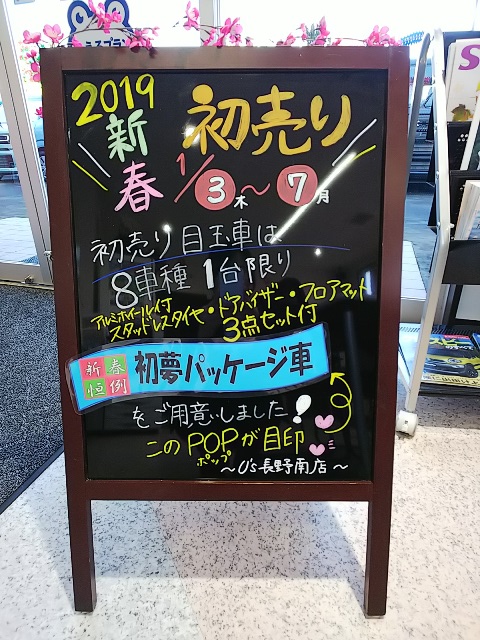 2019
新春
初売り
1/3木～7月
初売り目玉車は
8車種 1台限り
アルミホイール付
スタッドレスタイヤ・ドアバイザー・フロアマット
3点セット付
新春恒例 初夢パッケージ車
をご用意しました!
このPOPが目印
ポップ
～U's長野南店～